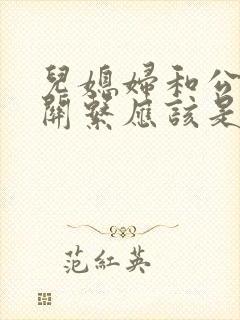 兒媳婦和公
關繫應該是
范紅英